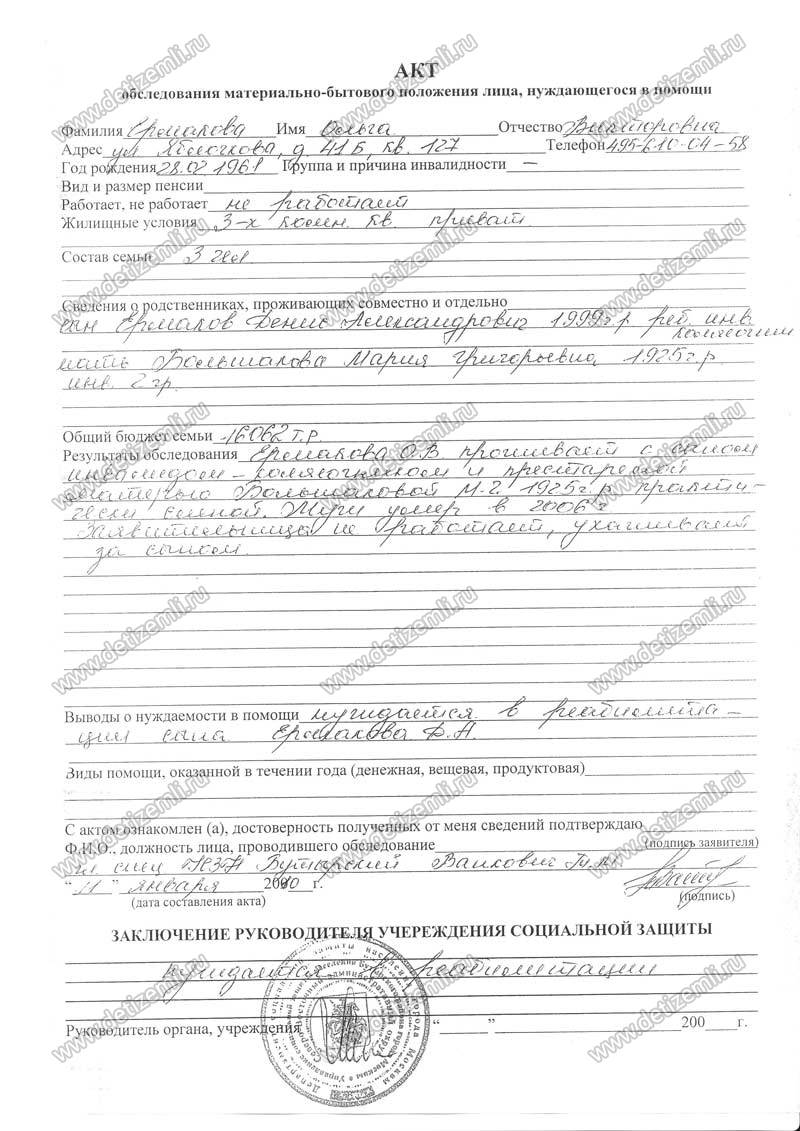 АКТ
обследования материально-бытового положения лица, нуждающегося в помощи
Фамилия Ермакова Имя Ольга Отчество Викторовна
Адрес ул Яблочкова, д. 41Б, кв. 127 Телефон 495-610-04-58
Год рождения 28.02 1961 Группа и причина инвалидности —
Вид и размер пенсии
Работает, не работает не работает
Жилищные условия 3-х комн. кв. приват
Состав семьи 3 чел.
Сведения о родственниках, проживающих совместно и отдельно
сын Ермаков Денис Александрович 1999г.р. реб. инв.
колясочник
мать Большакова Мария Григорьевна 1925г.р.
инв. 2 гр.
Общий бюджет семьи 16062 т.р.
Результаты обследования Ермакова О.В. проживает с сыном
инвалидом - колясочником и престарелой
матерью Большаковой М.Г. 1925г.р. практи-
чески слепой. Муж умер в 2006 г.
Заявительница не работает, ухаживает
за сыном.
Выводы о нуждаемости в помощи нуждается в реабилита-
ции сына Ермакова Д.А.
Виды помощи, оказанной в течении года (денежная, вещевая, продуктовая)
С актом ознакомлен (а), достоверность полученных от меня сведений подтверждаю
(подпись заявителя)
Ф.И.О., должность лица, проводившего обследование
гл. спец УСЗН Бутырский
“ 11 ” января 200 г.
(дата составления акта) (подпись)
ЗАКЛЮЧЕНИЕ РУКОВОДИТЕЛЯ УЧЕРЕЖДЕНИЯ СОЦИАЛЬНОЙ ЗАЩИТЫ
нуждается в реабилитации
Руководитель органа, учреждения “ ” 200 г.
www.detizemli.ru